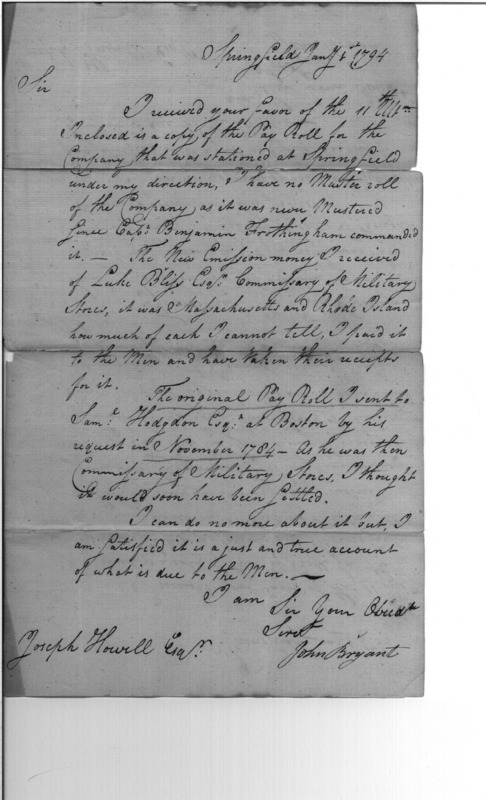 Springfield Jany 1st 1794
Sir
I received your favor of the 11th Ultmo
Inclosed is a copy of the Pay Roll for the
Company that was stationed at Springfield
under my direction, I have no Muster roll
of the Company as it was never Mustered
Since Capt. Benjamin Frothingham commanded
it. — The New Emission money I received
of Luke Bliss Esqr. Commissary of Military
Stores, it was Massachusetts and Rhode Island
how much of each I cannot tell, I paid it
to the Men and have taken their receipts
for it.
The original Pay Roll I sent to
Saml. Hodgdon Esqr. at Boston by his
request in November 1784 — As he was then
Commissary of Military Stores, I thought
it would soon have been settled.
I can do no more about it but, I
am satisfied it is a just and true account
of what is due to the Men. —
I am
Sir Your Obedt
Servt
Joseph Howell Esqr.
John Bryant